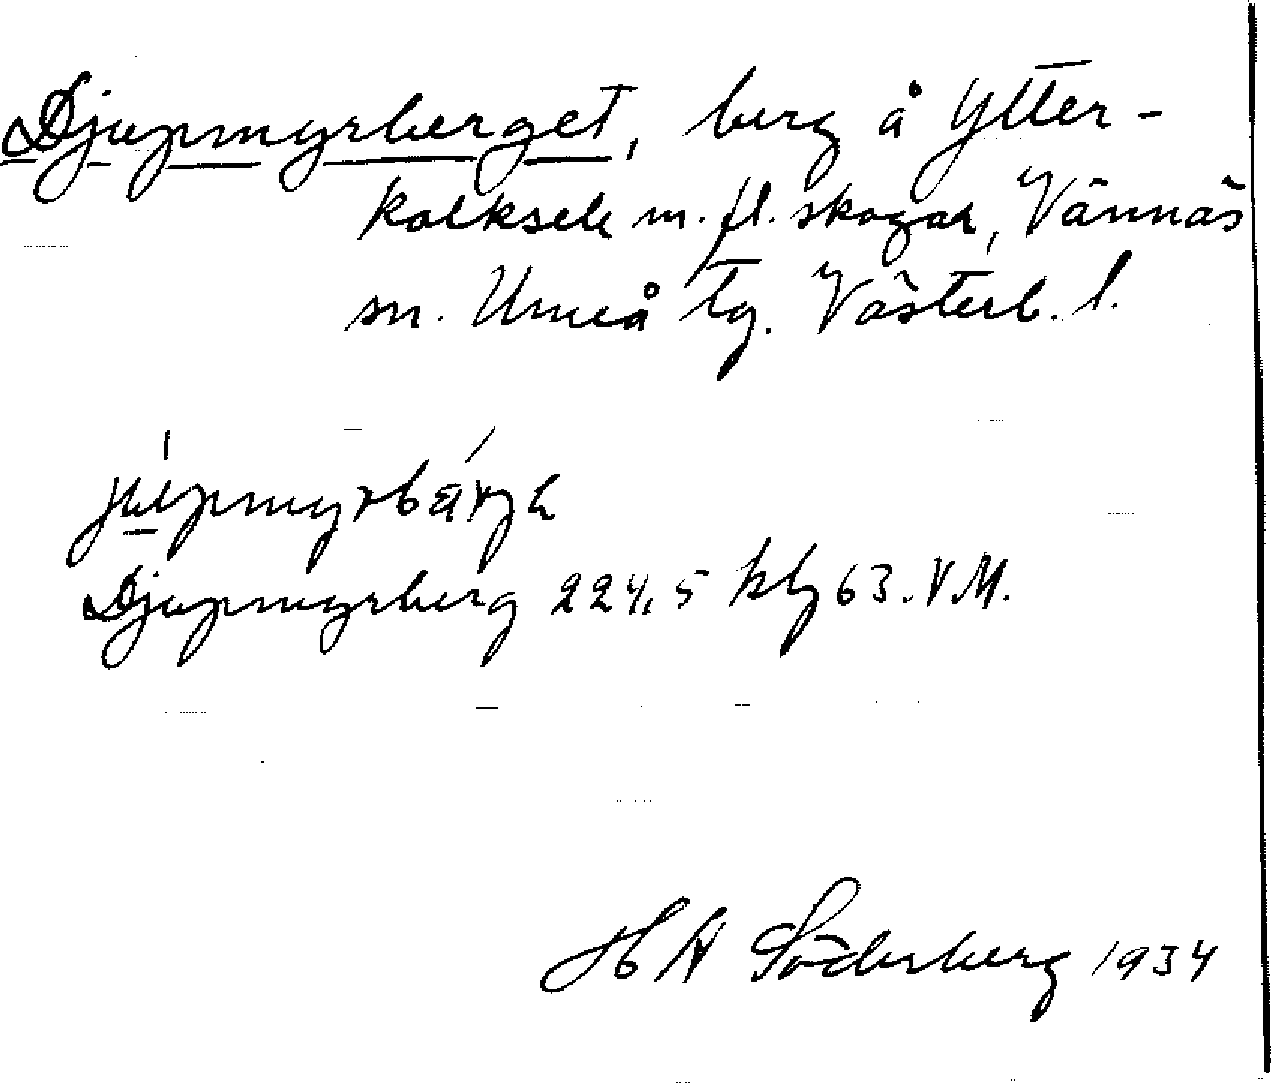 Djupmyrberget, berg å Ytter-
kolksele m. fl. skogar, Vännäs
sn. Umeå tg. Västerb. l.
Djupmyrberg 224,5 kbl 63. V. M.
H A Söderberg 1934